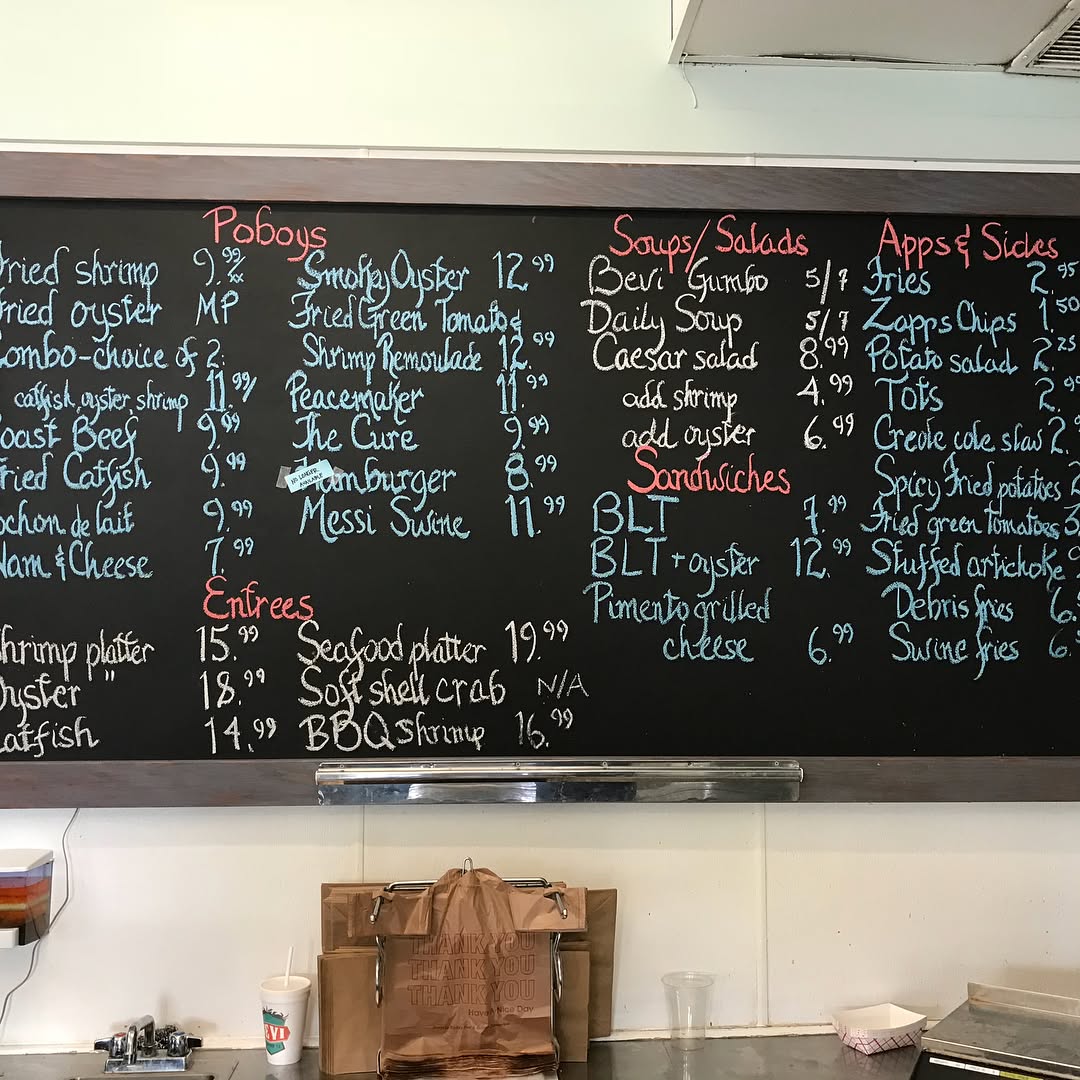 Poboys
Fried shrimp 9.99
Fried oyster MP
Combo-choice of 2:
catfish, oyster, shrimp 11.99/
Roast Beef 9.99
Fried Catfish 9.99
ochon de lait 9.99
Ham & Cheese 7.99
Smokey Oyster 12.99
Fried Green Tomato &
Shrimp Remoulade 12.99
Peacemaker 11.99
The Cure 9.99
NO LONGER
AVAILABLE
Hamburger 8.99
Messi Swine 11.99
Entrees
Shrimp platter 15.99
Oyster " 18.99
Catfish 14.99
Seafood platter 19.99
Soft shell crab N/A
BBQ shrimp 16.99
Soups/Salads
Bevi Gumbo 5/7
Daily Soup 5/7
Caesar salad 8.99
add shrimp 4.99
add oyster 6.99
Sandwiches
BLT 7.99
BLT + oyster 12.99
Pimento grilled
cheese 6.99
Apps & Sides
Fries 2.95
Zapps Chips 1.50
Potato salad 2.25
Tots 2.95
Creole cole slaw 2.
Spicy Fried potatoes
Fried green tomatoes
Stuffed artichoke
Debris fries 6.
Swine fries 6.
THANK YOU
THANK YOU
THANK YOU
Have A Nice Day
EVI